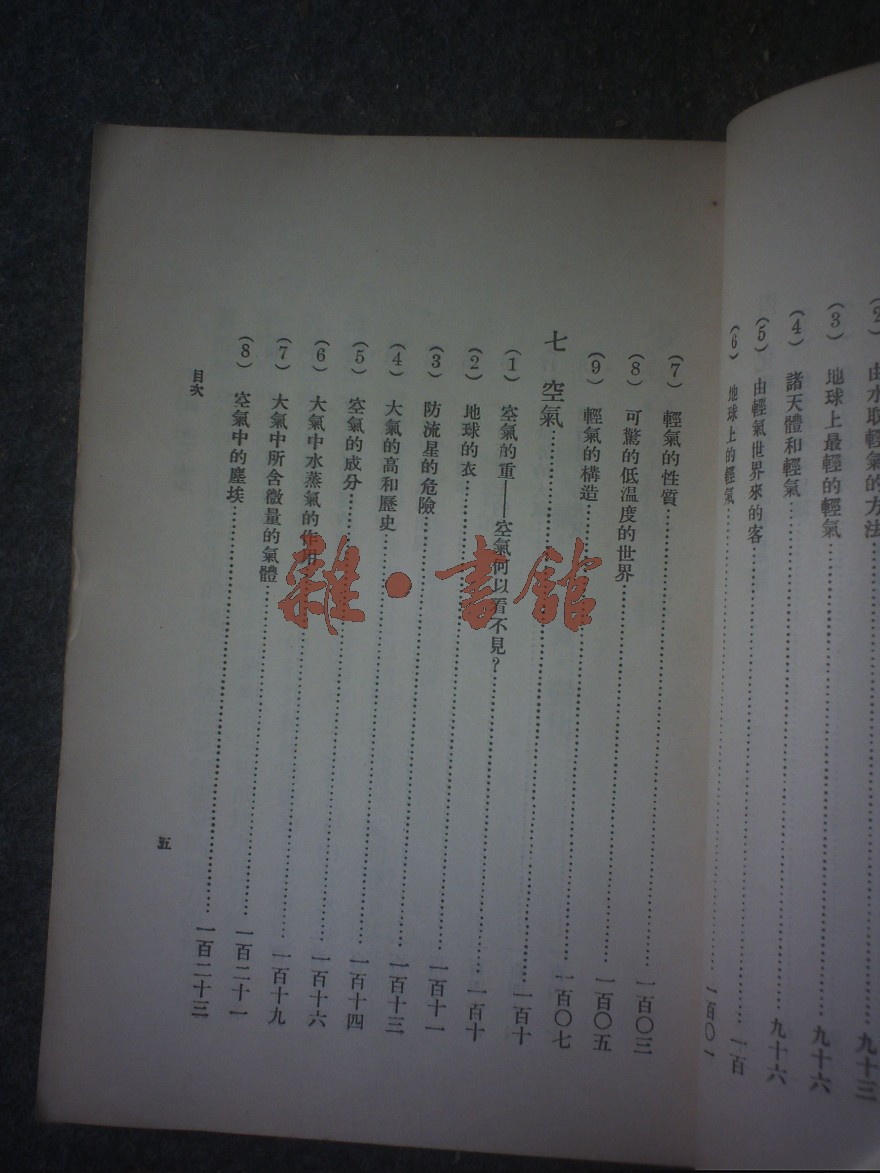 (2) 由水取輕氣的方法……九十三
(3) 地球上最輕的輕氣……九十六
(4) 諸天體和輕氣……九十六
(5) 由輕氣世界來的客……一百
(6) 地球上的輕氣……一百〇一
(7) 輕氣的性質……一百〇三
(8) 可驚的低溫度的世界……一百〇五
(9) 輕氣的構造……一百〇七
七 空氣……一百十
(1) 空氣的重——空氣何以看不見?……一百十
(2) 地球的衣……一百十一
(3) 防流星的危險……一百十三
(4) 大氣的高和歷史……一百十四
(5) 空氣的成分……一百十六
(6) 大氣中水蒸氣的作用……一百十九
(7) 大氣中所含微量的氣體……一百二十一
(8) 空氣中的塵埃……一百二十三
目次
五
雜·書館